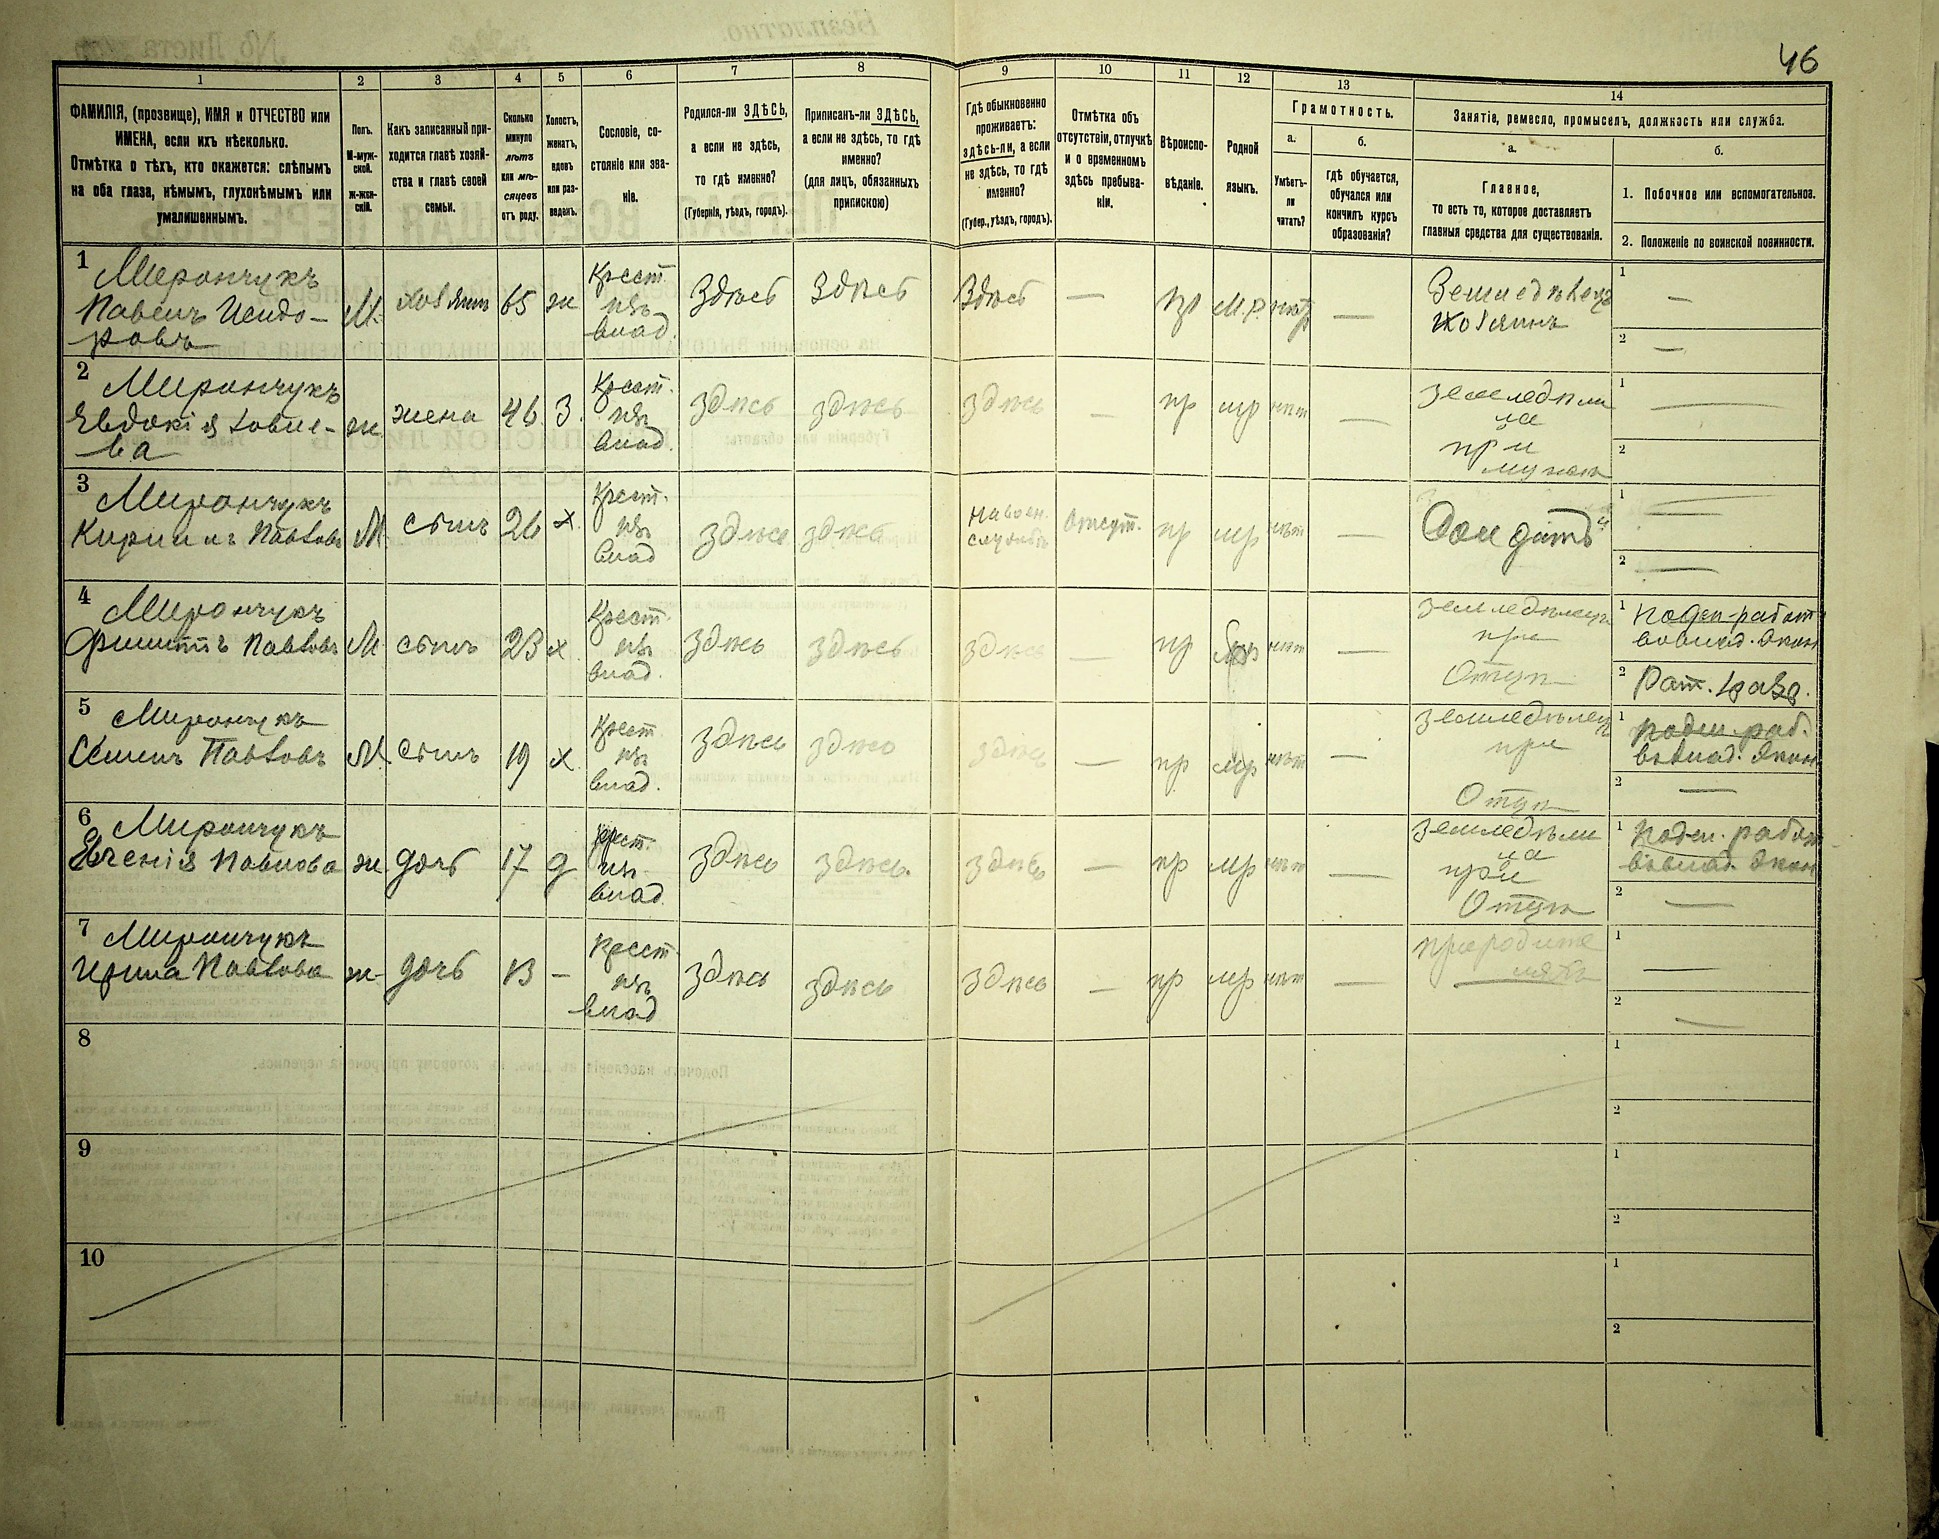 46
1 2 3 4 5 6 7 8 9 10 11 12 13 14
ФАМИЛІЯ, (прозвище), ИМЯ и ОТЧЕСТВО или
ИМЕНА, если ихъ нѣсколько.
Отмѣтка о тѣхъ, кто окажется: слѣпымъ
на оба глаза, нѣмымъ, глухонѣмымъ или
умалишеннымъ.
Полъ.
М-муж-
ской.
ж-жен-
скій.
Какъ записанный при-
ходится главѣ хозяй-
ства и главѣ своей
семьи.
Сколько
минуло
лѣтъ
или мѣ-
сяцевъ
отъ роду.
Холостъ,
женатъ,
вдовъ
или раз-
веденъ.
Сословіе, со-
стояніе или зва-
ніе.
Родился-ли ЗДѢСЬ,
а если не здѣсь,
то гдѣ именно?
(Губернія, уѣздъ, городъ).
Приписанъ-ли ЗДѢСЬ,
а если не здѣсь, то гдѣ
именно?
(для лицъ, обязанныхъ
припискою)
Гдѣ обыкновенно
проживаетъ:
здѣсь-ли, а если
не здѣсь, то гдѣ
именно?
(Губер., уѣздъ, городъ).
Отмѣтка объ
отсутствіи, отлучкѣ
и о временномъ
здѣсь пребыва-
ніи.
Вѣроиспо-
вѣданіе.
Родной
языкъ.
Грамотность.
а.
Умѣетъ-
ли
читать?
б.
гдѣ обучается,
обучался или
кончилъ курсъ
образованія?
Занятіе, ремесло, промыселъ, должность или служба.
а.
Главное,
то есть то, которое доставляетъ
главныя средства для существованія.
б.
1. Побочное или вспомогательное.
2. Положеніе по воинской повинности.
1 Мирончукъ
Павелъ Исидо-
ровъ
М. хозяинъ 65 ж Крест. изъ влад. Здѣсь Здѣсь Здѣсь — пр М.р. нѣтъ —
Земледѣлецъ
хозяинъ
1 —
2 —
2 Мирончукъ
Евдокія
ва
ж жена 46 З. Крест. изъ влад. здѣсь здѣсь здѣсь — пр мр нѣтъ —
при
мужѣ
1 —
2
3 Мирончукъ
Кирилъ Павловъ
М сынъ 26 х Крест. изъ влад здѣсь здѣсь На воен. службѣ Отсут. пр мр нѣтъ —
Солдатъ
1 —
2 —
4 Мирончукъ
Филиппъ Павловъ
М сынъ 23 х Крест. изъ влад. здѣсь здѣсь здѣсь — пр мр нѣтъ —
земледѣлецъ
при
Отцѣ
1 поден. работ
во влад. Экон
2 Рат. 1 разр.
5 Мирончукъ
Семенъ Павловъ
М. сынъ 19 х Крест. изъ влад. здѣсь здѣсь здѣсь — пр мр нѣтъ —
земледѣлецъ
при
Отцѣ
1 поден. раб.
въ влад. Экон
2 —
6 Мирончукъ
Евгенія Павлова
ж. дочь 17 д Крест. изъ влад здѣсь здѣсь. здѣсь — пр мр нѣтъ —
при
Отцѣ
1 поден. работ
въ влад. Экон
2 —
7 Мирончукъ
Ирина Павлова
ж дочь 13 — Крест. изъ влад здѣсь здѣсь здѣсь — пр мр нѣтъ —
при родите
ляхъ
1 —
2 —
8
1
2
9
1
2
10
1
2